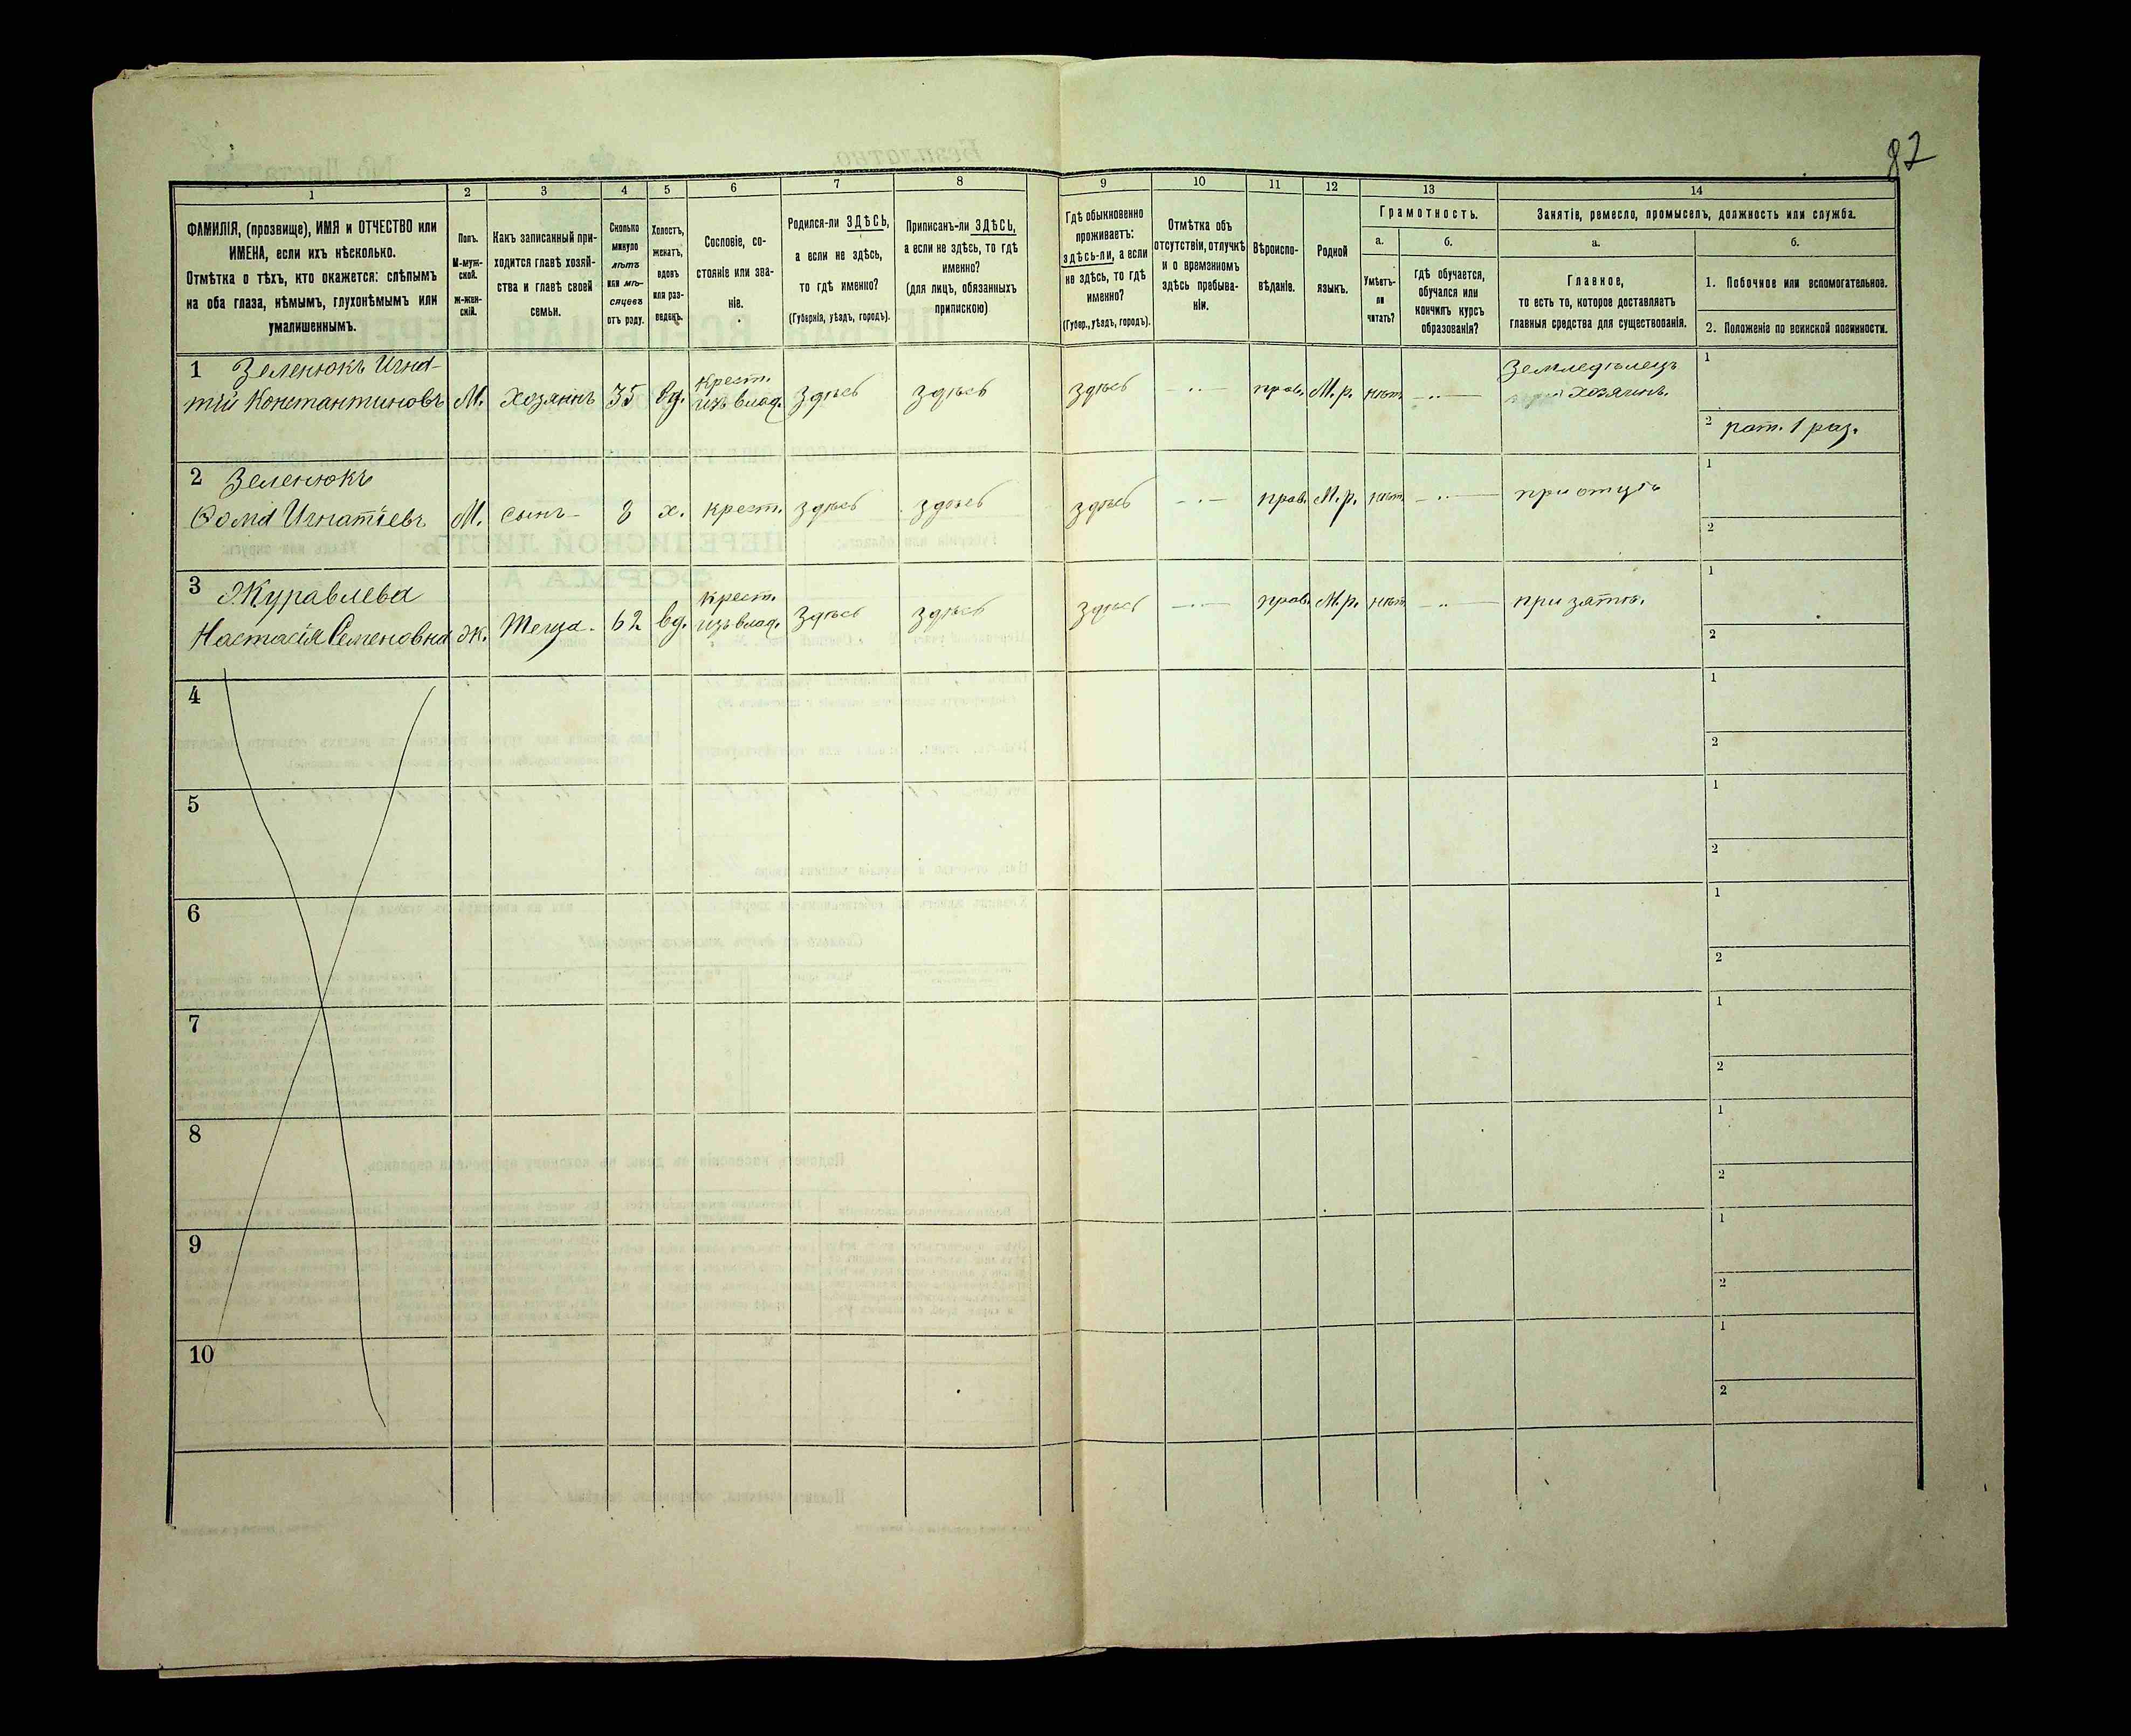 82
1
ФАМИЛІЯ, (прозвище), ИМЯ и ОТЧЕСТВО или
ИМЕНА, если ихъ нѣсколько.
Отмѣтка о тѣхъ, кто окажется: слѣпымъ
на оба глаза, нѣмымъ, глухонѣмымъ или
умалишеннымъ.
2
Полъ.
М-муж-
ской.
Ж-жен-
скій.
3
Какъ записанный при-
ходится главѣ хозяй-
ства и главѣ своей
семьи.
4
Сколько
минуло
лѣтъ
или мѣ-
сяцевъ
отъ роду.
5
Холостъ,
женатъ,
вдовъ
или раз-
веденъ.
6
Сословіе, со-
стояніе или зва-
ніе.
7
Родился-ли ЗДѢСЬ,
а если не здѣсь,
то гдѣ именно?
(Губернія, уѣздъ, городъ).
8
Приписанъ-ли ЗДѢСЬ,
а если не здѣсь, то гдѣ
именно?
(для лицъ, обязанныхъ
припискою)
9
Гдѣ обыкновенно
проживаетъ:
здѣсь-ли, а если
не здѣсь, то гдѣ
именно?
(Губер., уѣздъ, городъ).
10
Отмѣтка объ
отсутствіи, отлучкѣ
и о временномъ
здѣсь пребыва-
ніи.
11
Вѣроиспо-
вѣданіе.
12
Родной
языкъ.
13
Грамотность.
а.
Умѣетъ-
ли
читать?
б.
гдѣ обучается,
обучался или
кончилъ курсъ
образованія?
14
Занятіе, ремесло, промыселъ, должность или служба.
а.
Главное,
то есть то, которое доставляетъ
главныя средства для существованія.
б.
1. Побочное или вспомогательное.
2. Положеніе по воинской повинности.
1 Зеленюкъ Игна-
тій Константиновъ М. Хозяинъ 35 вд. Крест. изъ влад. Здѣсь здѣсь здѣсь — " — прав. М.р. нѣт. — " — Земледѣлецъ
хозяинъ.
1
2 рат. 1 раз.
2 Зеленюкъ
Ѳома Игнатіевъ М. сынъ 8 х. крест. здѣсь здѣсь здѣсь — " — прав. М.р. нѣт. — " — при отцѣ
1
2
3 Журавлева
Настасія Семеновна Ж. Теща. 62 вд. Крест. изъ влад. Здѣсь здѣсь здѣсь — " — прав. М.р. нѣт. — " — при зятѣ.
1
2
4
1
2
5
1
2
6
1
2
7
1
2
8
1
2
9
1
2
10
1
2